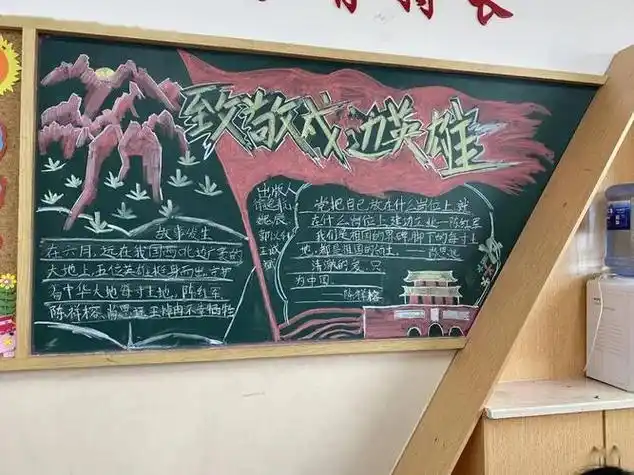 致敬戍边英雄
故事发生
在六月,远在我国西北边疆的
大地上,五位英雄挺身而出,守护
当中华大地每寸土地,陈红军
陈祥榕 肖思远 王焯冉不幸牺牲
出版人
姚辰
郭以
王诚
当把自己放在什么岗位上就
在什么岗位上建功立业—陈红军
我们是祖国的界碑,脚下的每寸土
地,都是祖国的领土。
清澈的爱,只
为中国
——陈祥榕